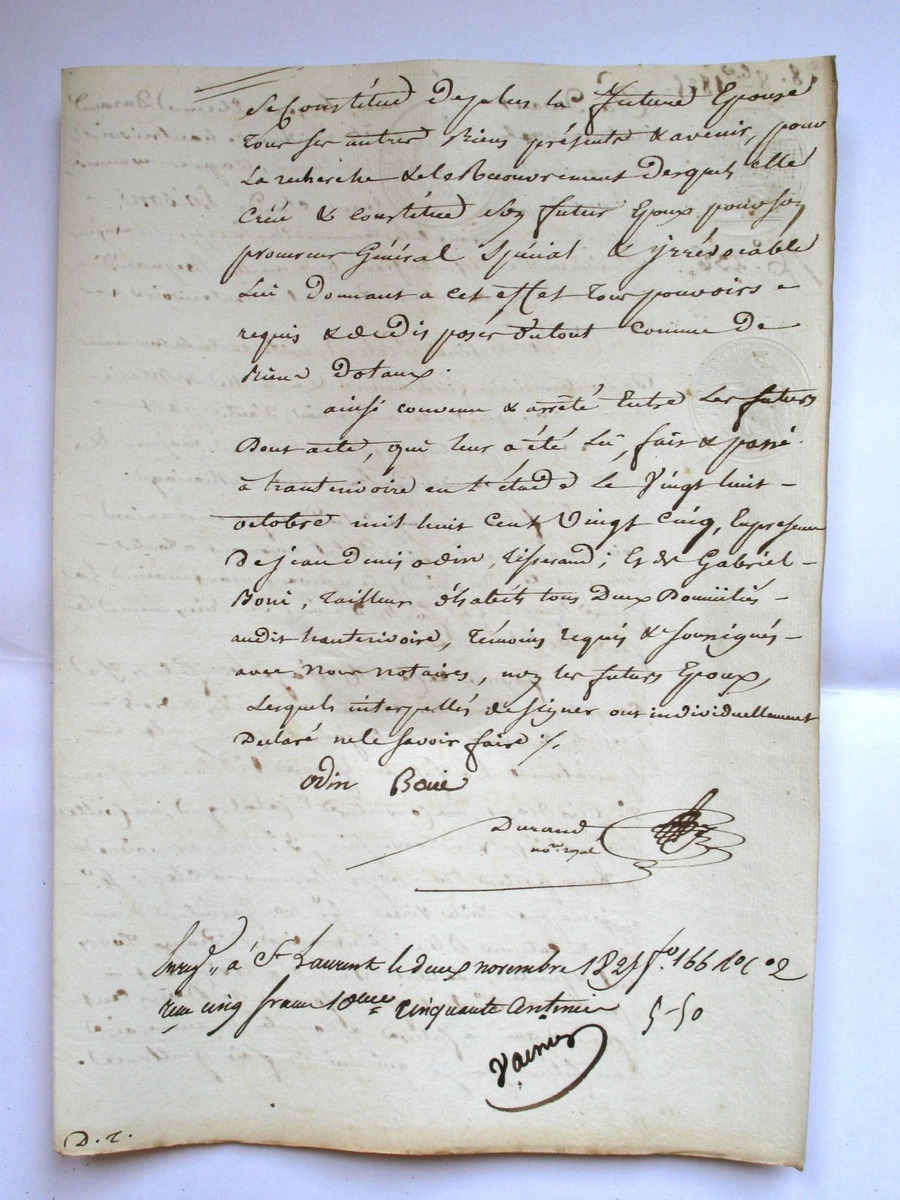 Se Constitue De plus la future Epouse
tous ses autres Biens présents & avenir, pour
La recherche & le Recouvrement Desquels elle
Créé & constitue Son futur Epoux pour son
procureur Général Spécial & yrrévocable
Lui Donnant a cet effet tous pouvoirs
requis & de Disposer Dutout Comme De
Biens Dotaux.
ainsi convenu & arrêté Entre Les futurs
Dont acte, qui leur a été Lû, fait & passé
à hauterivoire en l'étude Le Vingt huit
octobre mil huit Cent Vingt Cinq, En présence
De jean Denis odin, Tisserand; Et de Gabriel
Boni, Tailleur d'habits tous Deux Domiciliés
audit hauterivoire, témoins requis & Soussignés
avec Nous notaires, non les futurs Epoux,
Lesquels interpellés de signer ont individuellement
Déclaré ne le savoir faire ./.
odin Boni
Durand
no.re royal
Enreg. à St Laurent le deux novembre 1825 fo. 166 Ro C. 2
reçu cinq francs 10eme cinquante centimes 5-50
D. r.